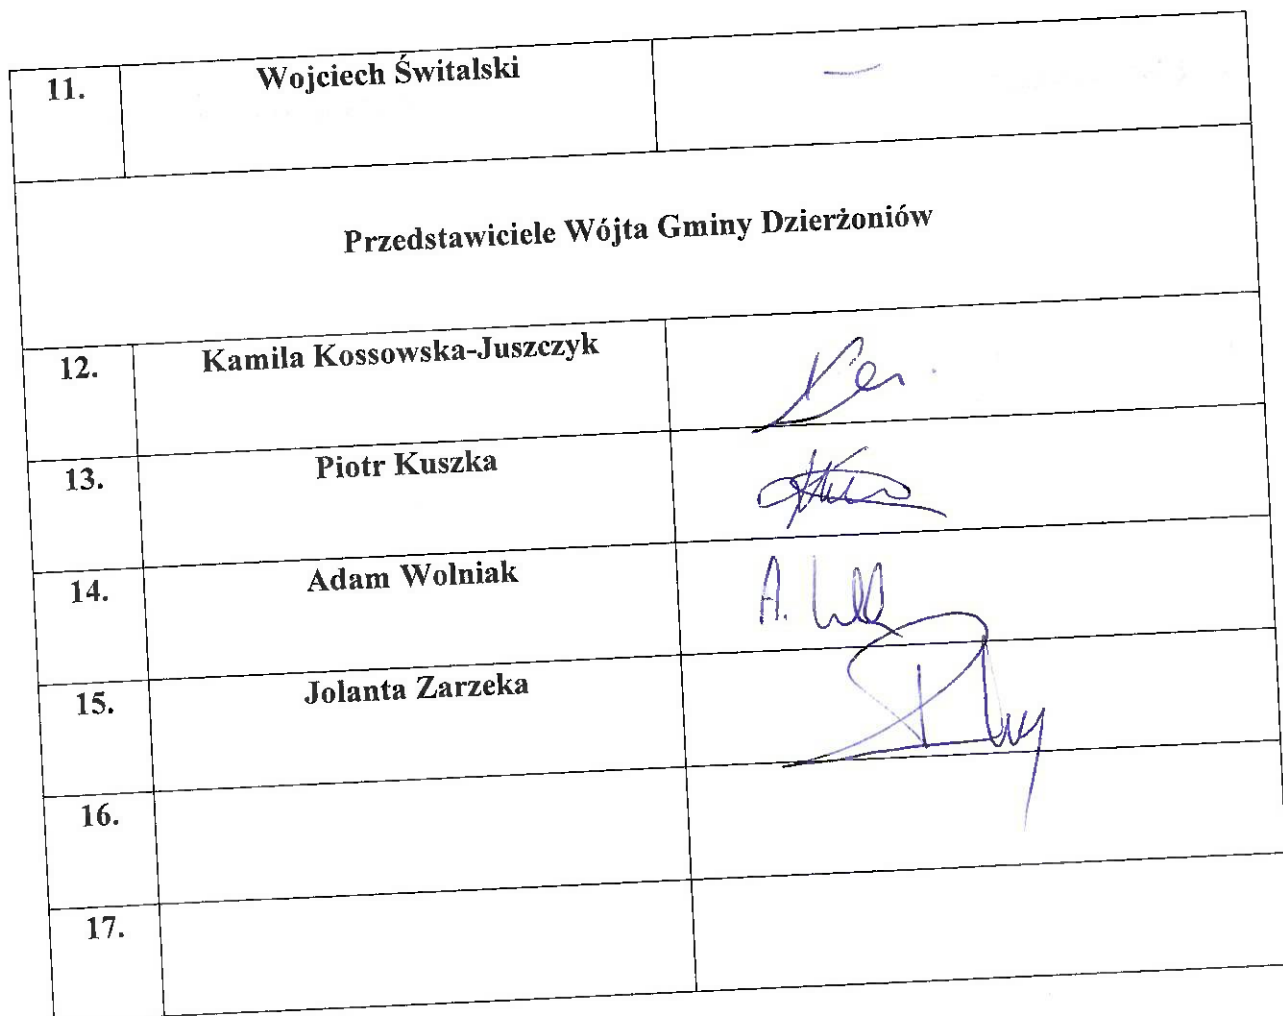 11. Wojciech Świtalski —
Przedstawiciele Wójta Gminy Dzierżoniów
12. Kamila Kossowska-Juszczyk
13. Piotr Kuszka
14. Adam Wolniak A.
15. Jolanta Zarzeka
16.
17.